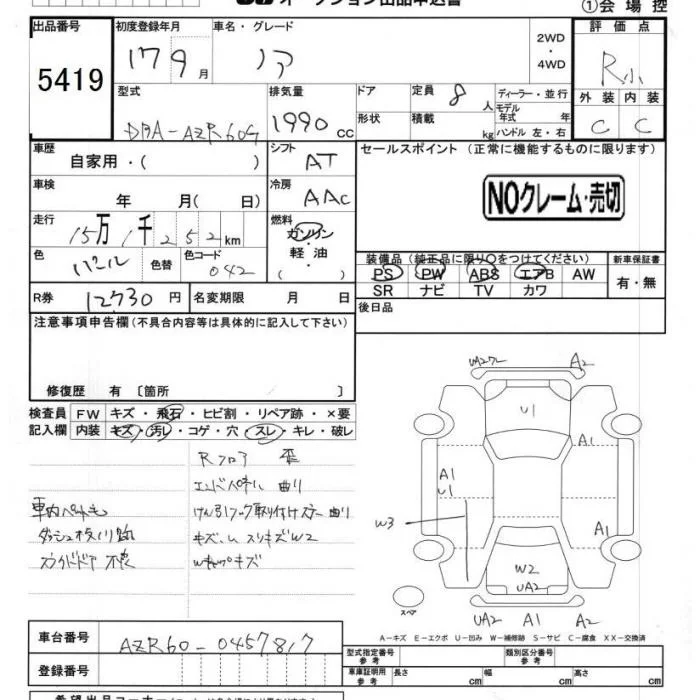 オークション出品申込書
①会場控
出品番号
5419
初度登録年月
17 9 月
車名・グレード
ノア
2WD
・
4WD
評価点
R小
外装 内装
C C
型式
DBA-AZR60G
排気量
1990 cc
ドア
形状
定員 8 人
積載 kg
ディーラー・並行
モデル
年式 年
ハンドル 左・右
車歴
自家用・( )
シフト
AT
セールスポイント (正常に機能するものに限ります)
NOクレーム・売切
車検
年 月( 日)
冷房
AAC
走行
15万 1千 252 km
燃料
ガソリン
軽油
・( )
色
パール
色替
色コード
042
装備品 (純正品に限り○をつけてください)
PS PW ABS エアB AW
SR ナビ TV カワ
新車保証書
有・無
R券 12730 円
名変期限 月 日
後日品
注意事項申告欄 (不具合内容等は具体的に記入して下さい)
修復歴 有 〔箇所 〕
検査員
記入欄
FW キズ・飛石・ヒビ割・リペア跡・×要
内装 キズ・汚レ・コゲ・穴・スレ・キレ・破レ
Rフロア 歪
エンドパネル 曲り
車内ペットモ
けん引フック取り付けステー曲り
ダッシュ
キズ、U スリキズW2
スライドドア 不良
Wキャップキズ
UA2ワレ
A2
U1
A1
A1
U1
W3
A1
W2
UA2
スペア
UA2
A1
A2
A-キズ E-エクボ U-凹み W-補修跡 S-サビ C-腐食 XX-交換済
車台番号
AZR60-0457817
登録番号
型式指定番号
参考
類別区分番号
参考
車庫証明用
参考
長さ cm
幅 cm
高さ cm